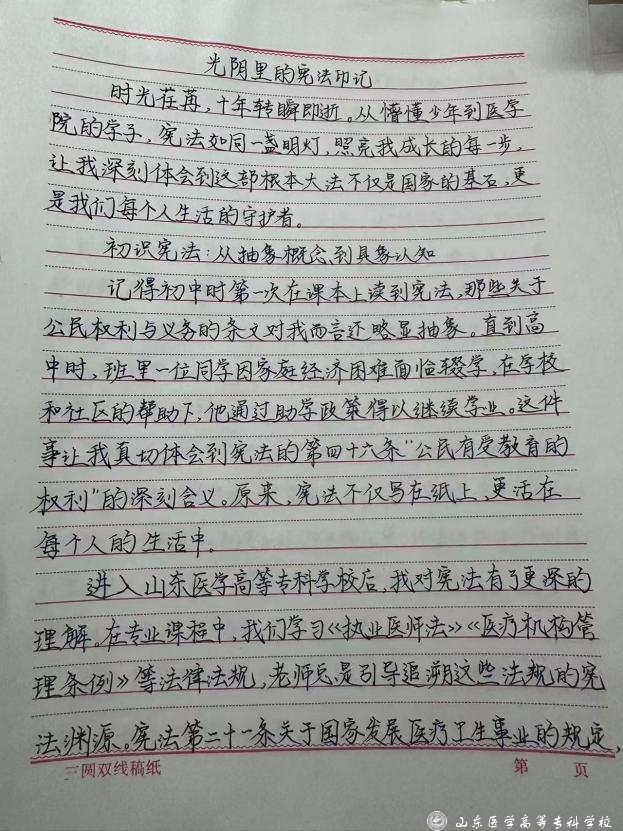 光阴里的宪法印记
时光荏苒，十年转瞬即逝。从懵懂少年到医学
院的学子，宪法如同一盏明灯，照亮我成长的每一步，
让我深刻体会到这部根本大法不仅是国家的基石，更
是我们每个人生活的守护者。
初识宪法：从抽象概念到具象认知
记得初中时第一次在课本上读到宪法，那些关于
公民权利与义务的条文对我而言还略显抽象。直到高
中时，班里一位同学因家庭经济困难面临辍学，在学校
和社区的帮助下，他通过助学政策得以继续学业。这件
事让我真切体会到宪法的第四十六条“公民有受教育的
权利”的深刻含义。原来，宪法不仅写在纸上，更活在
每个人的生活中。
进入山东医学高等专科学校后，我对宪法有了更深的
理解。在专业课程中，我们学习《执业医师法》《医疗机构管
理条例》等法律法规，老师总是引导追溯这些法规的宪
法渊源。宪法第二十一条关于国家发展医疗卫生事业的规定，
三圆双线稿纸
第 页
山东医学高等专科学校